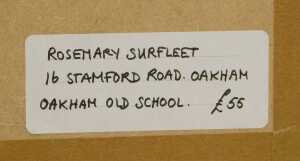 ROSEMARY SURFLEET
16 STAMFORD ROAD. OAKHAM
OAKHAM OLD SCHOOL. £55